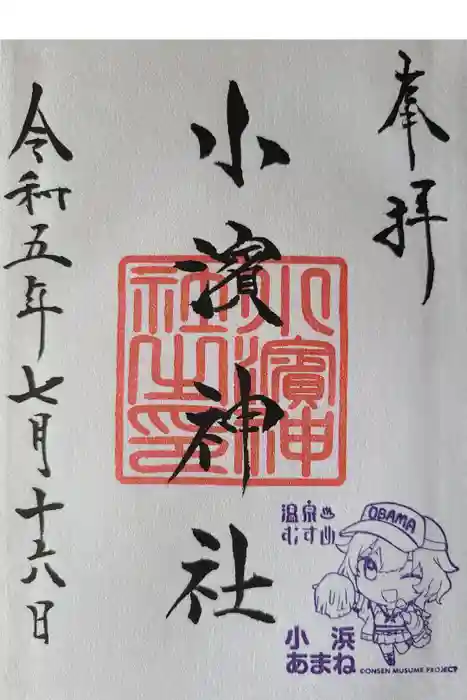 奉拝
小濱神社
小濱神社之印
令和五年七月十六日
OBAMA
温泉♨
むすめ
小浜
あまね
©ONSEN MUSUME PROJECT